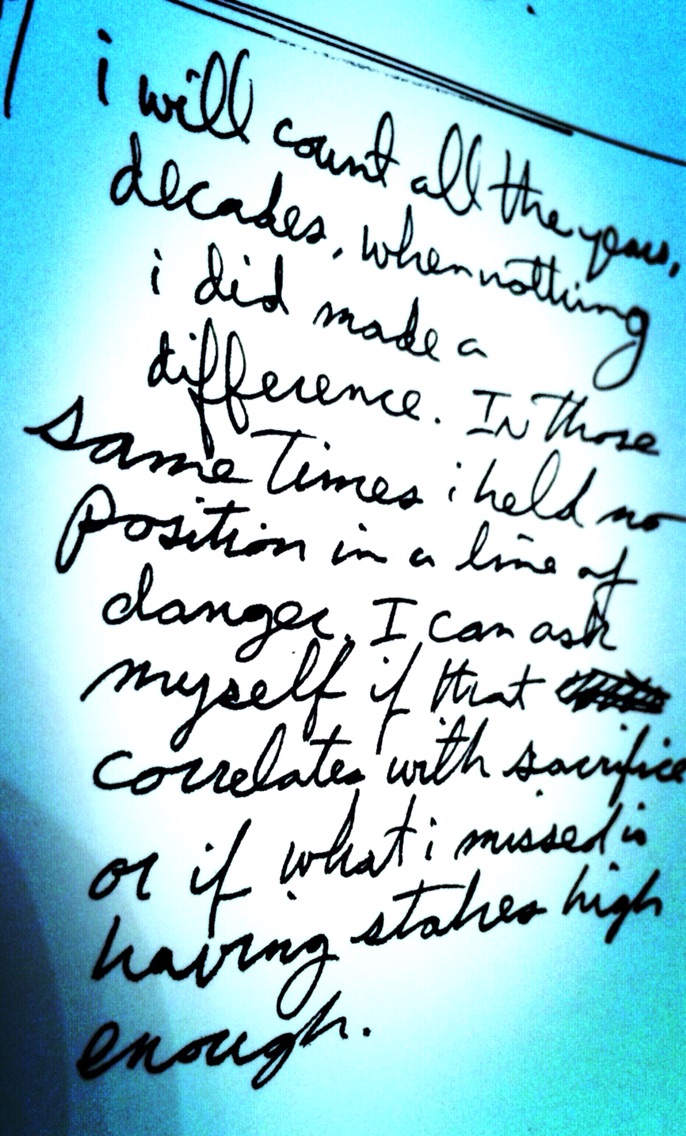 i will count all the years,
decades, when nothing
i did made a
difference. In those
same times i held no
position in a line of
danger. I can ask
myself if that
correlates with sacrifice
or if what i missed is
having stakes high
enough.